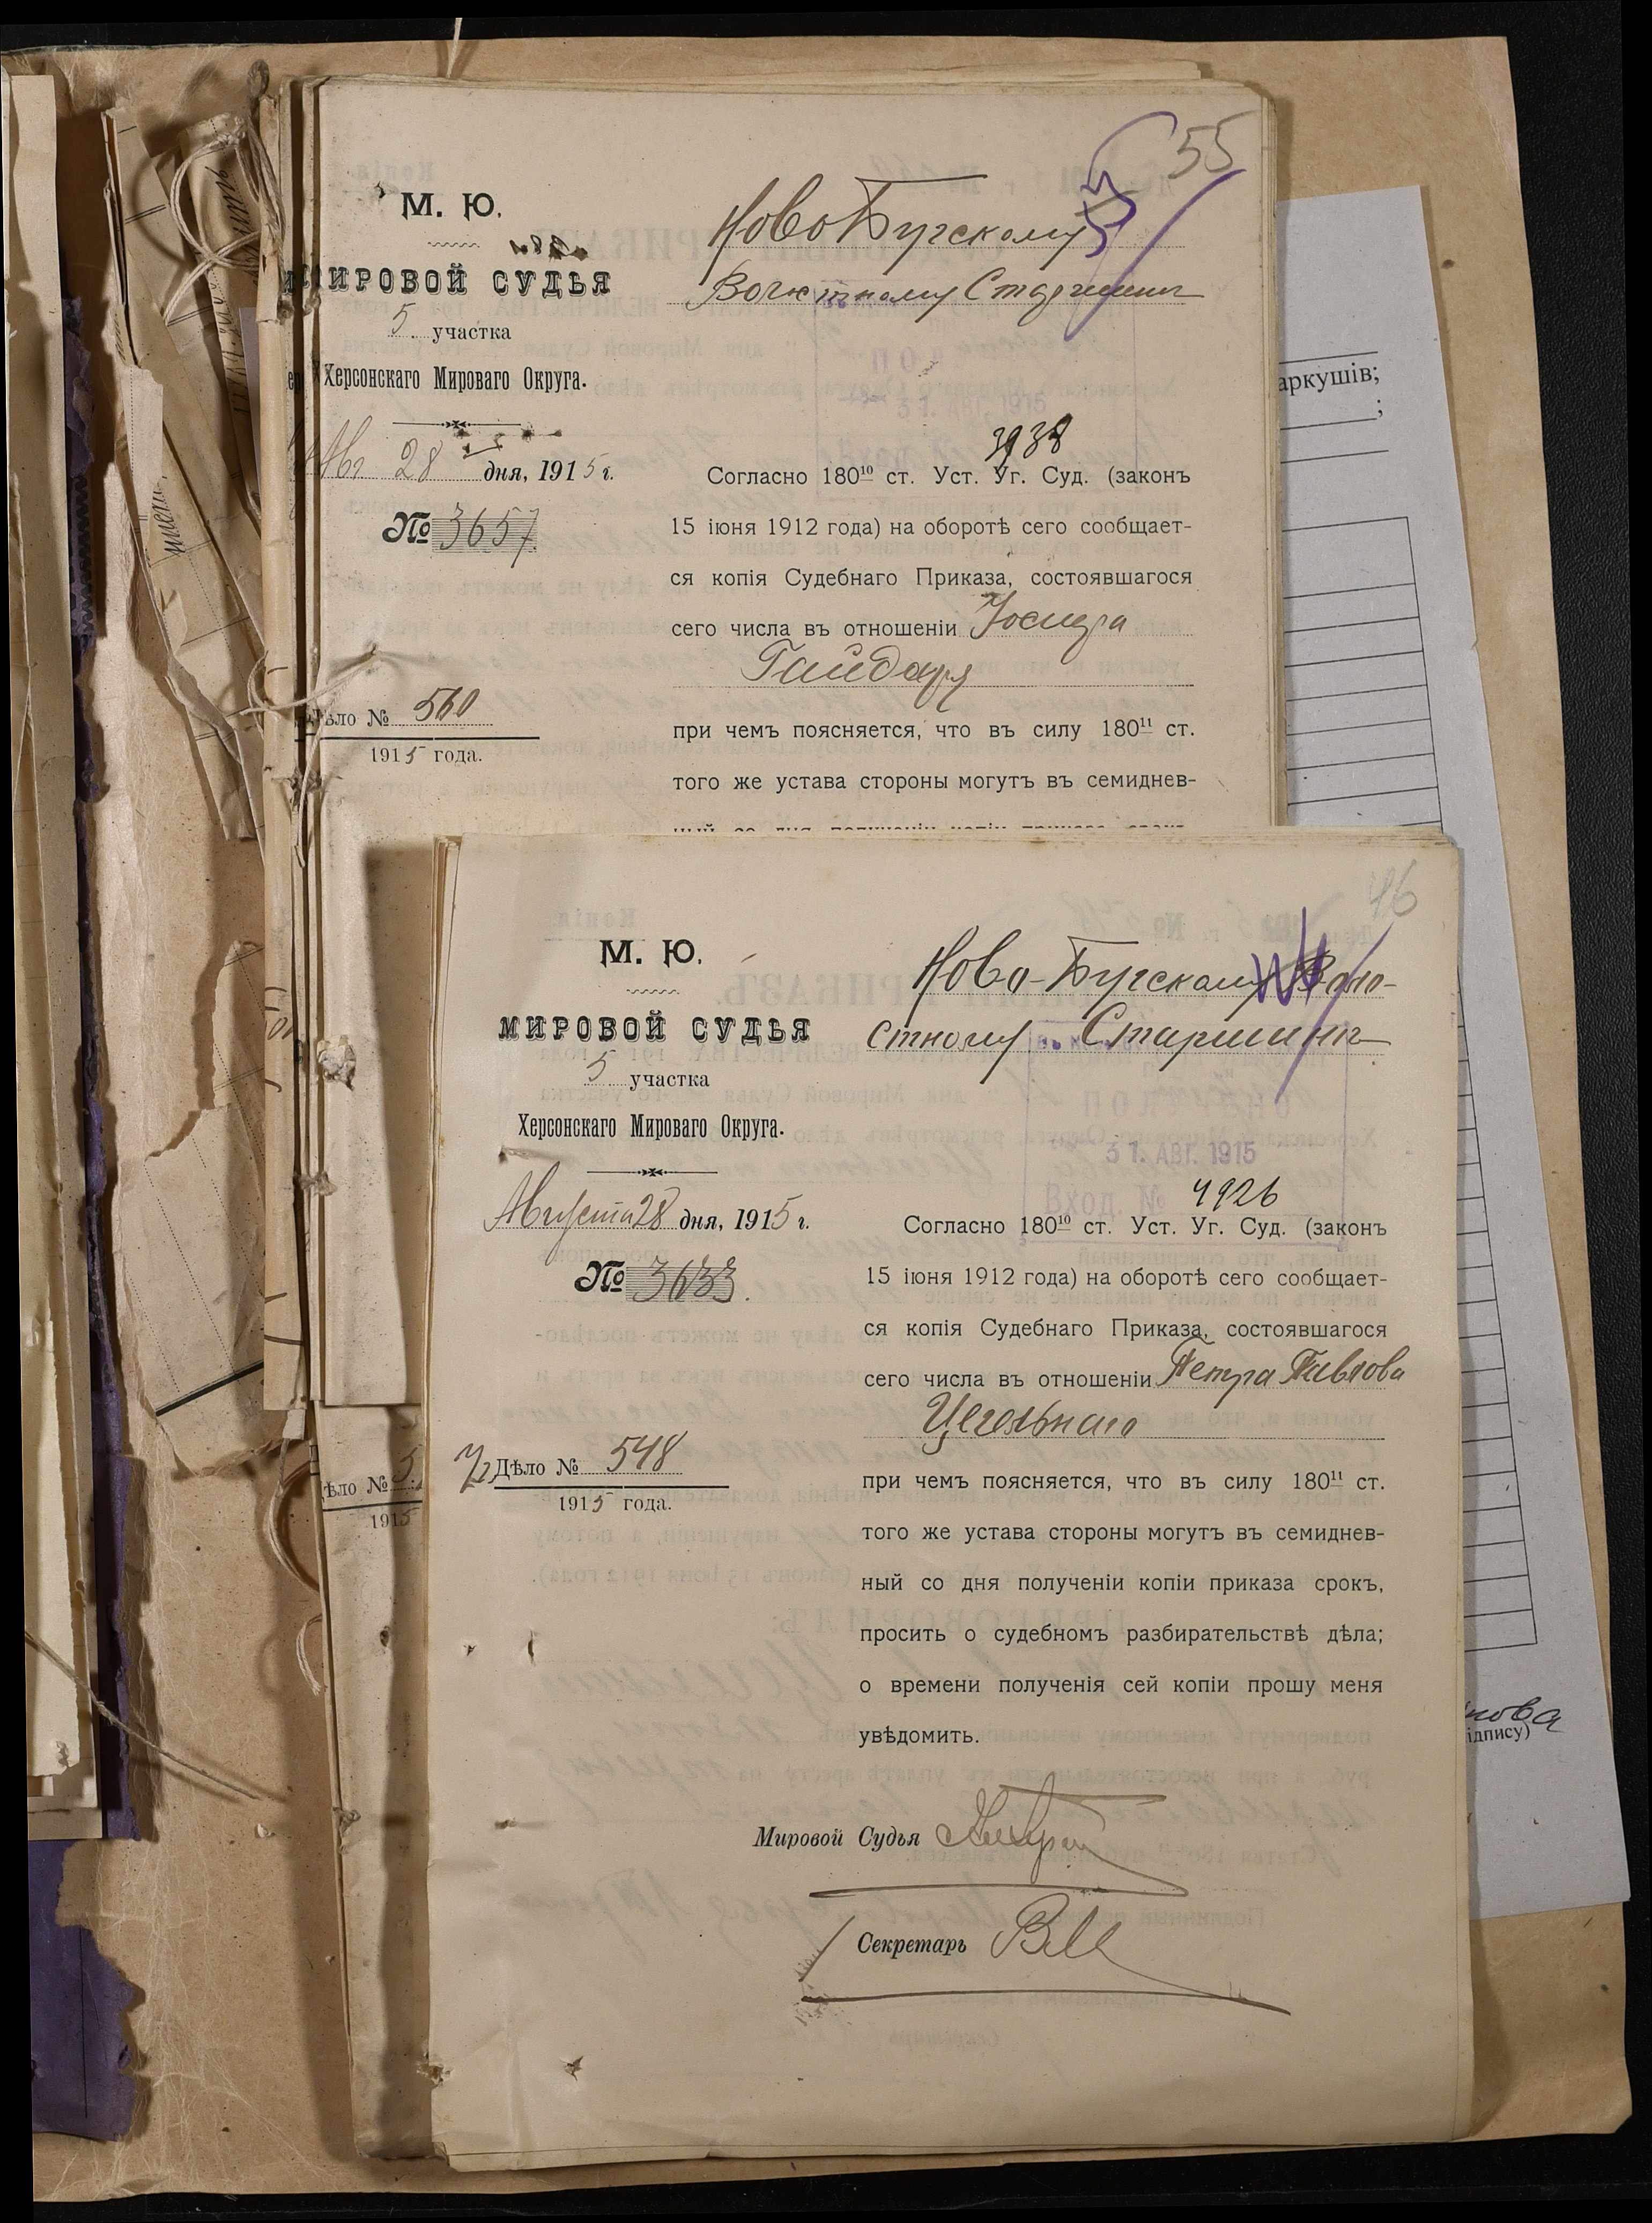 55
М. Ю.
МИРОВОЙ СУДЬЯ
5 участка
Херсонскаго Мироваго Округа.
Авг 28 дня, 1915 г.
№ 3657
Дѣло № 560
1915 года.
Ново Бугскому
Волостному Старшинѣ
31. АВГ. 1915
3938
Согласно 180¹⁰ ст. Уст. Уг. Суд. (законъ
15 іюня 1912 года) на оборотѣ сего сообщает-
ся копія Судебнаго Приказа, состоявшагося
сего числа въ отношеніи Іосифа
Гайдаря
при чемъ поясняется, что въ силу 180¹¹ ст.
того же устава стороны могутъ въ семиднев-
аркушів;
;
46
М. Ю.
МИРОВОЙ СУДЬЯ
5 участка
Херсонскаго Мироваго Округа.
Августа 28 дня, 1915 г.
№ 3633.
Дѣло № 548
1915 года.
Ново-Бугскому Воло-
стному Старшинѣ
31. АВГ. 1915
Вход. № 4926
Согласно 180¹⁰ ст. Уст. Уг. Суд. (законъ
15 іюня 1912 года) на оборотѣ сего сообщает-
ся копія Судебнаго Приказа, состоявшагося
сего числа въ отношеніи Петра Павлова
Цегельнаго
при чемъ поясняется, что въ силу 180¹¹ ст.
того же устава стороны могутъ въ семиднев-
ный со дня полученіи копіи приказа срокъ,
просить о судебномъ разбирательствѣ дѣла;
о времени полученія сей копіи прошу меня
увѣдомить.
Мировой Судья
Секретарь
ѣло № 5
1915
нова
ідпису)